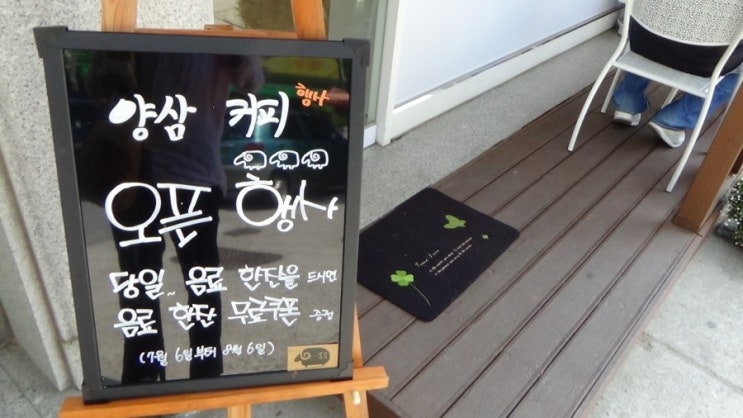 양삼 커피 행사
오픈 행사
당일~ 음료 한잔을 드시면
음료 한잔 무료쿠폰 증정
(7월 6일부터 8월 6일)